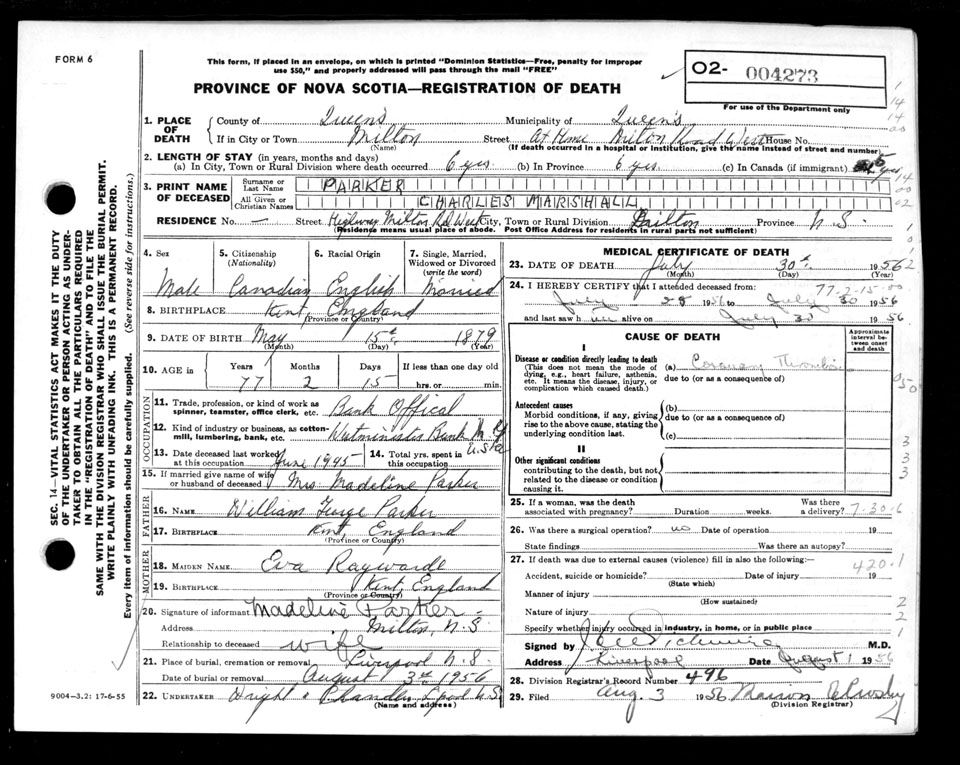 FORM 6
This form, if placed in an envelope, on which is printed "Dominion Statistics—Free, penalty for improper
use $50," and properly addressed will pass through the mail "FREE"
PROVINCE OF NOVA SCOTIA—REGISTRATION OF DEATH
02- 004273
For use of the Department only
1. PLACE OF DEATH
County of Queen's Municipality of Queen's
If in City or Town Milton Street At Home Milton Road West House No.
(Name) (If death occurred in a hospital or institution, give the name instead of street and number)
2. LENGTH OF STAY (in years, months and days)
(a) In City, Town or Rural Division where death occurred 6 yrs. (b) In Province 6 yrs. (c) In Canada (if immigrant)
3. PRINT NAME OF DECEASED
Surname or Last Name PARKER
All Given or Christian Names CHARLES MARSHALL
RESIDENCE No. — Street Highway Milton Rd West City, Town or Rural Division Milton Province N.S.
(Residence means usual place of abode. Post Office Address for residents in rural parts not sufficient)
4. Sex Male
5. Citizenship (Nationality) Canadian
6. Racial Origin English
7. Single, Married, Widowed or Divorced (write the word) Married
8. BIRTHPLACE Kent, England
(Province or Country)
9. DATE OF BIRTH May 15th 1879
(Month) (Day) (Year)
10. AGE in Years Months Days If less than one day old
77 2 15 hrs. or min.
OCCUPATION
11. Trade, profession, or kind of work as spinner, teamster, office clerk, etc. Bank Offical
12. Kind of industry or business, as cotton-mill, lumbering, bank, etc. Westminister Bank N.Y. U.S.A
13. Date deceased last worked at this occupation June 1945
14. Total yrs. spent in this occupation
15. If married give name of wife or husband of deceased Mrs Madeline Parker
FATHER
16. NAME William George Parker
17. BIRTHPLACE Kent, England
(Province or Country)
MOTHER
18. MAIDEN NAME Eva Raywarde
19. BIRTHPLACE Kent, England
(Province or Country)
20. Signature of informant Madeline Parker
Address Milton, N.S.
Relationship to deceased wife
21. Place of burial, cremation or removal Liverpool N.S.
Date of burial or removal August 3rd 1956
22. UNDERTAKER Wright & Chandler L'pool N.S.
(Name and address)
MEDICAL CERTIFICATE OF DEATH
23. DATE OF DEATH July 30th 1956
(Month) (Day)
77-2-15-00
24. I HEREBY CERTIFY that I attended deceased from:
July 28 1956 to July 30 1956
and last saw him alive on July 30 1956
CAUSE OF DEATH
Approximate interval between onset and death
I
Disease or condition directly leading to death (a) Coronary Thrombosis
(This does not mean the mode of dying, e.g., heart failure, asthenia, etc. It means the disease, injury, or complication which caused death.)
due to (or as a consequence of)
Antecedent causes (b)
Morbid conditions, if any, giving rise to the above cause, stating the underlying condition last.
due to (or as a consequence of)
(c)
II
Other significant conditions
contributing to the death, but not related to the disease or condition causing it.
25. If a woman, was the death associated with pregnancy? Duration weeks. Was there a delivery? 7-30-6
26. Was there a surgical operation? no Date of operation 19
State findings Was there an autopsy?
27. If death was due to external causes (violence) fill in also the following:—
420.1
Accident, suicide or homicide? Date of injury 19
(State which)
Manner of injury
(How sustained)
Nature of injury
Specify whether injury occurred in industry, in home, or in public place
Signed by M.D.
Address Liverpool Date August 1 1956
28. Division Registrar's Record Number 496
29. Filed Aug. 3 1956 Marion
(Division Registrar)
SEC. 14—VITAL STATISTICS ACT MAKES IT THE DUTY
OF THE UNDERTAKER OR PERSON ACTING AS UNDER-
TAKER TO OBTAIN ALL THE PARTICULARS REQUIRED
IN THE "REGISTRATION OF DEATH" AND TO FILE THE
SAME WITH THE DIVISION REGISTRAR WHO SHALL ISSUE THE BURIAL PERMIT.
WRITE PLAINLY WITH UNFADING INK. THIS IS A PERMANENT RECORD.
Every item of information should be carefully supplied. (See reverse side for instructions.)
9004-3.2: 17-6-55